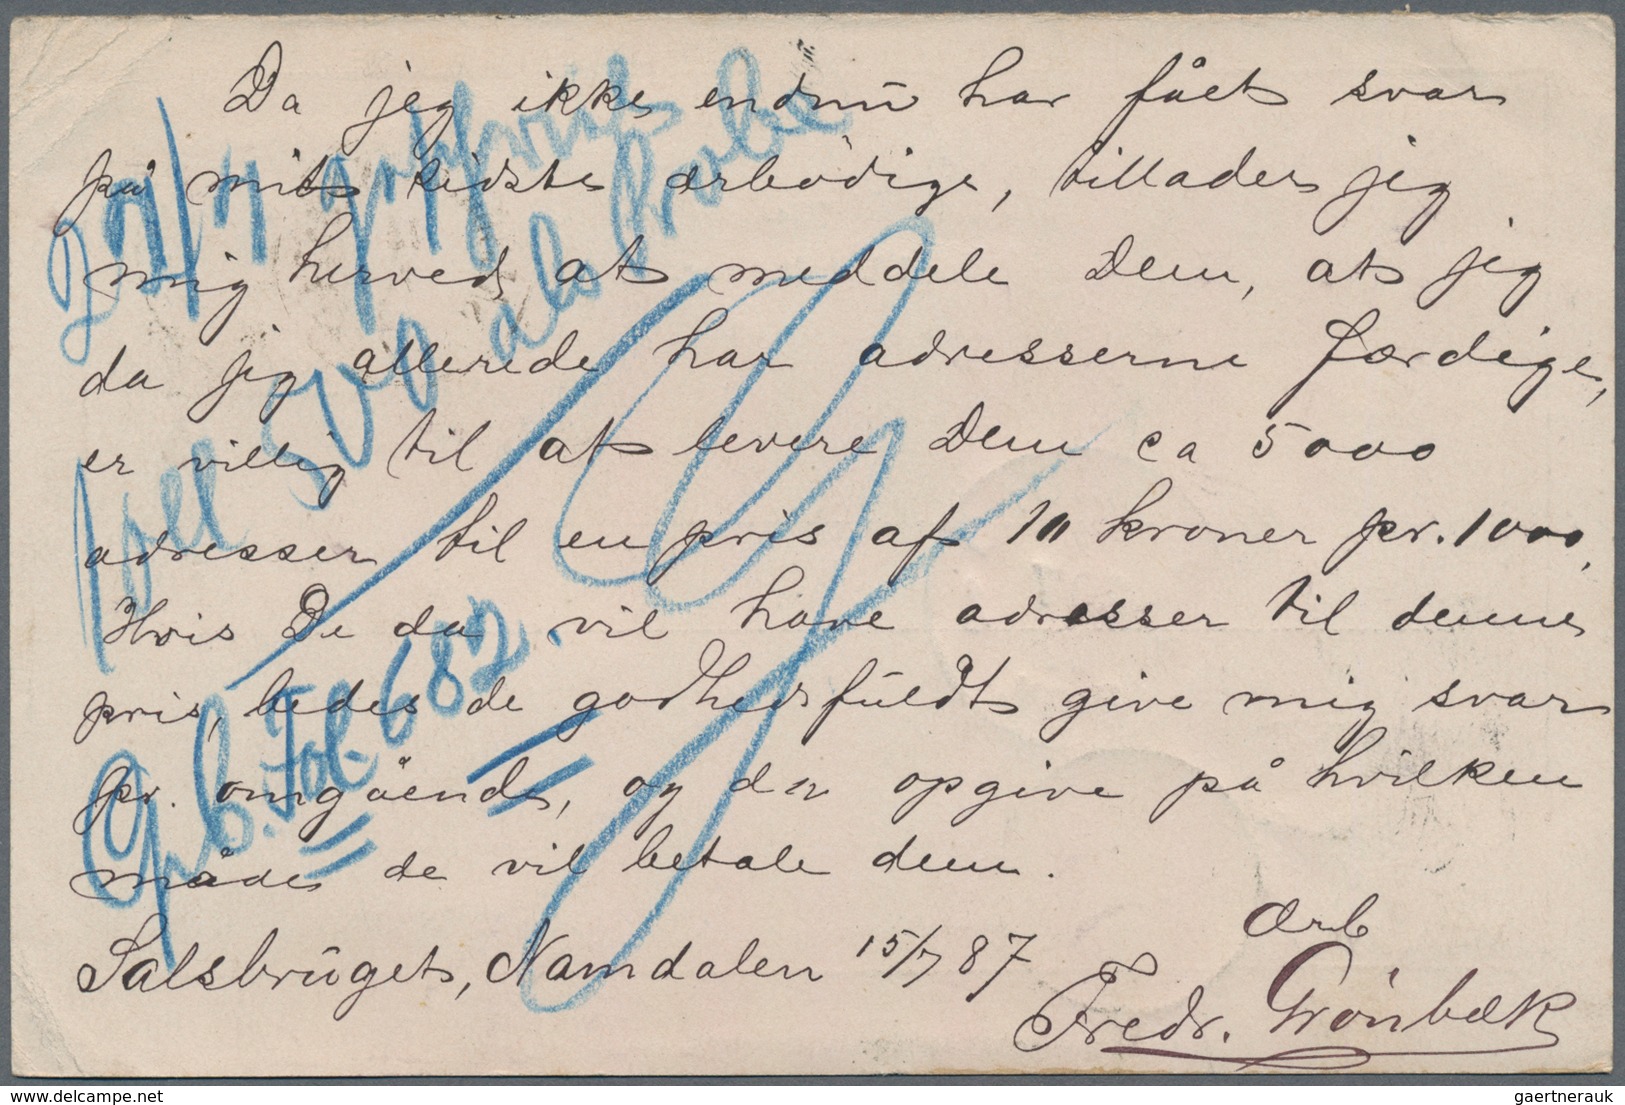 Da jeg ikke endnu har fået svar
på mit sidste ærbødige, tillader jeg
mig herved, at meddele Dem, at jeg
da jeg allerede har adresserne færdige,
er villig til at levere Dem ca 5000
adresser til en pris af 10 kroner pr. 1000.
Hvis De da vil have adresser til denne
pris, bedes de godhedsfuldt give mig svar
pr. omgående, og da opgive på hvilken
måde de vil betale dem.
Salsbruget, Namdalen 15/7 87
Ærb
Fredr. Grönbæk
500 als Probe
Gb. Fol. 682.
delcampe.net
gaertnerauk